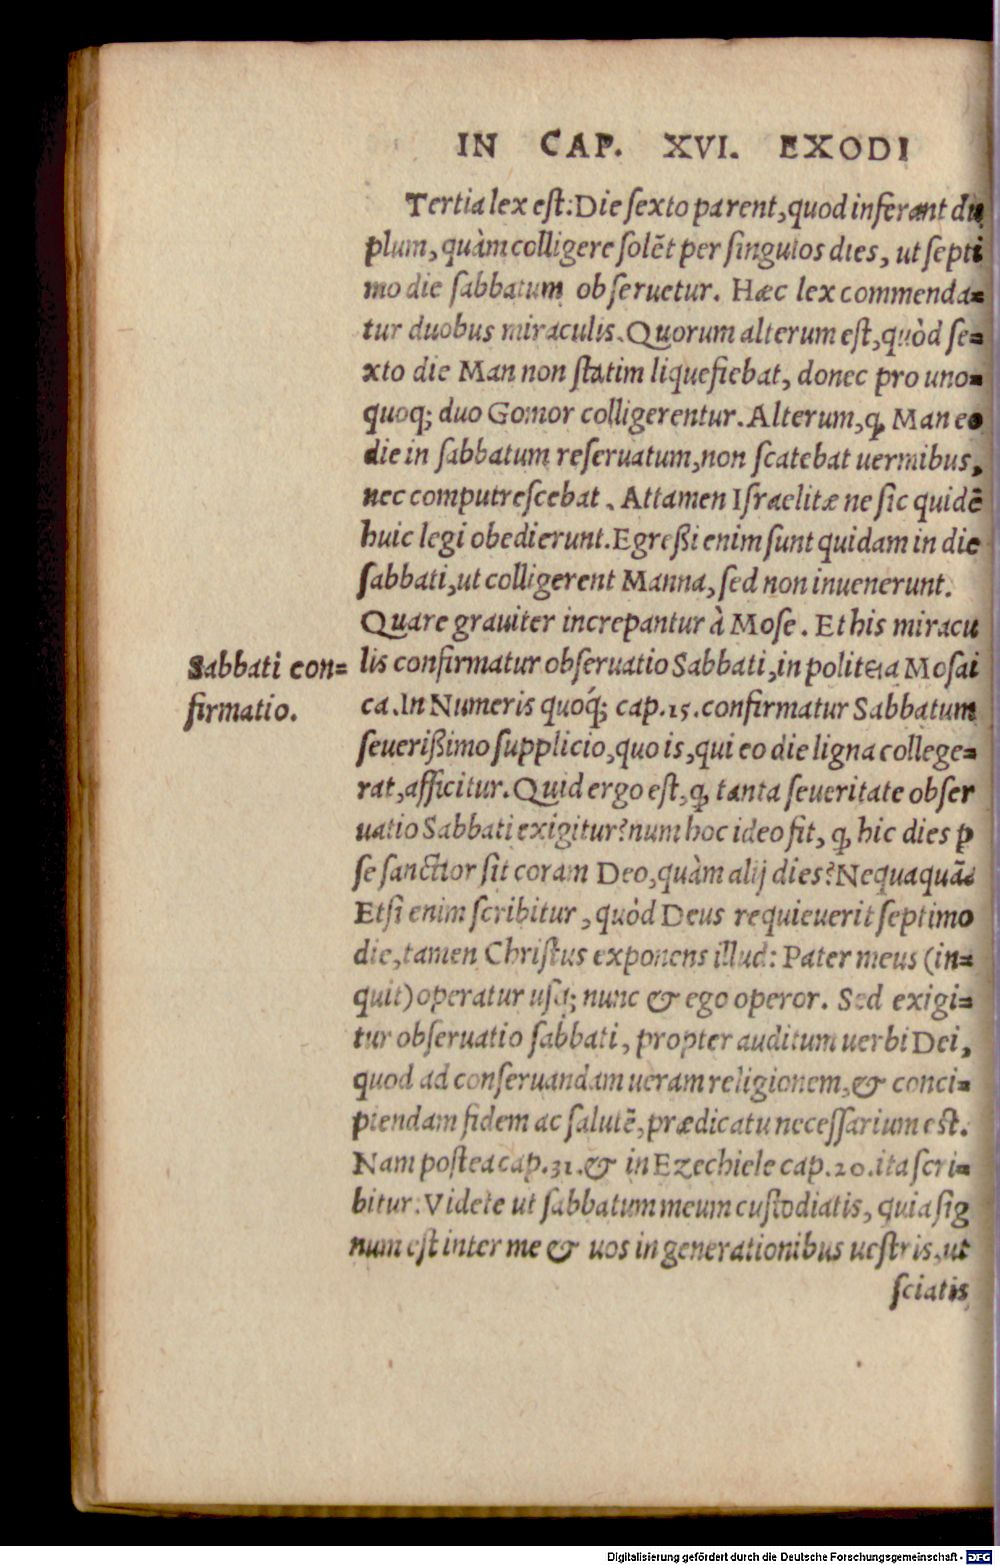 IN CAP. XVI. EXODI
Tertia lex est: Die sexto parent, quod inferant du
plum, quàm colligere solēt per singulos dies, ut septi
mo die sabbatum obseruetur. Hæc lex commenda=
tur duobus miraculis. Quorum alterum est, quòd se=
xto die Man non statim liquefiebat, donec pro uno=
quoq; duo Gomor colligerentur. Alterum, ꝙ Man eo
die in sabbatum reseruatum, non scatebat uermibus,
nec computrescebat. Attamen Israelitæ ne sic quidē
huic legi obedierunt. Egreßi enim sunt quidam in die
sabbati, ut colligerent Manna, sed non inuenerunt.
Quare grauiter increpantur à Mose. Et his miracu
Sabbati con=
firmatio.
lis confirmatur obseruatio Sabbati, in politeia Mosai
ca. In Numeris quoq́; cap. 15. confirmatur Sabbatum
seuerißimo supplicio, quo is, qui eo die ligna college=
rat, afficitur. Quid ergo est, ꝙ tanta seueritate obser
uatio Sabbati exigitur? num hoc ideo fit, ꝙ hic dies ꝑ
se sanctior sit coram Deo, quàm alij dies? Nequaquā.
Etsi enim scribitur, quòd Deus requieuerit septimo
die, tamen Christus exponens illud: Pater meus (in=
quit) operatur usq; nunc & ego operor. Sed exigi=
tur obseruatio sabbati, propter auditum uerbi Dei,
quod ad conseruandam ueram religionem, & conci=
piendam fidem ac salutē, prædicatu necessarium est.
Nam postea cap. 31. & in Ezechiele cap. 20. ita scri=
bitur: Videte ut sabbatum meum custodiatis, quia sig
num est inter me & uos in generationibus uestris, ut
sciatis
Digitalisierung gefördert durch die Deutsche Forschungsgemeinschaft - DFG